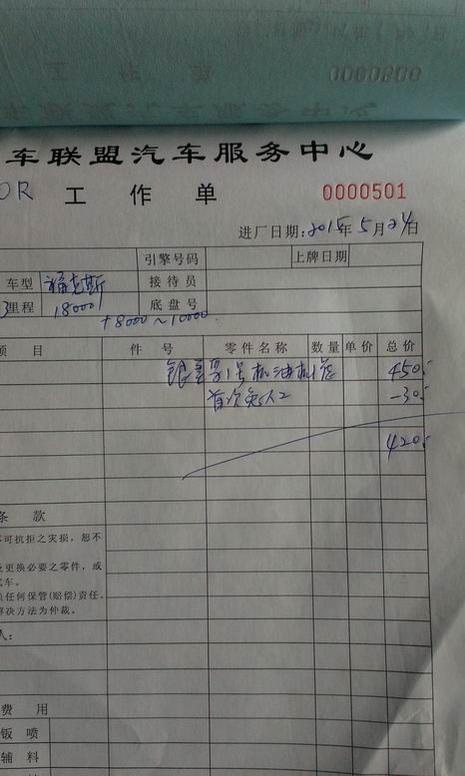 车联盟汽车服务中心
OR 工作单 0000501
进厂日期:2015年5月24日
引擎号码 上牌日期
车型 福克斯 接待员
里程 18000 底盘号
+8000~10000
项目 件号 零件名称 数量 单价 总价
1号机油机滤 450
首次免人工 -30
420
条款
不可抗拒之灾损,恕不
更换必要之零件,或
汽车。
负任何保管(赔偿)责任。
解决方法为仲裁。
人:
费用
钣喷
辅料